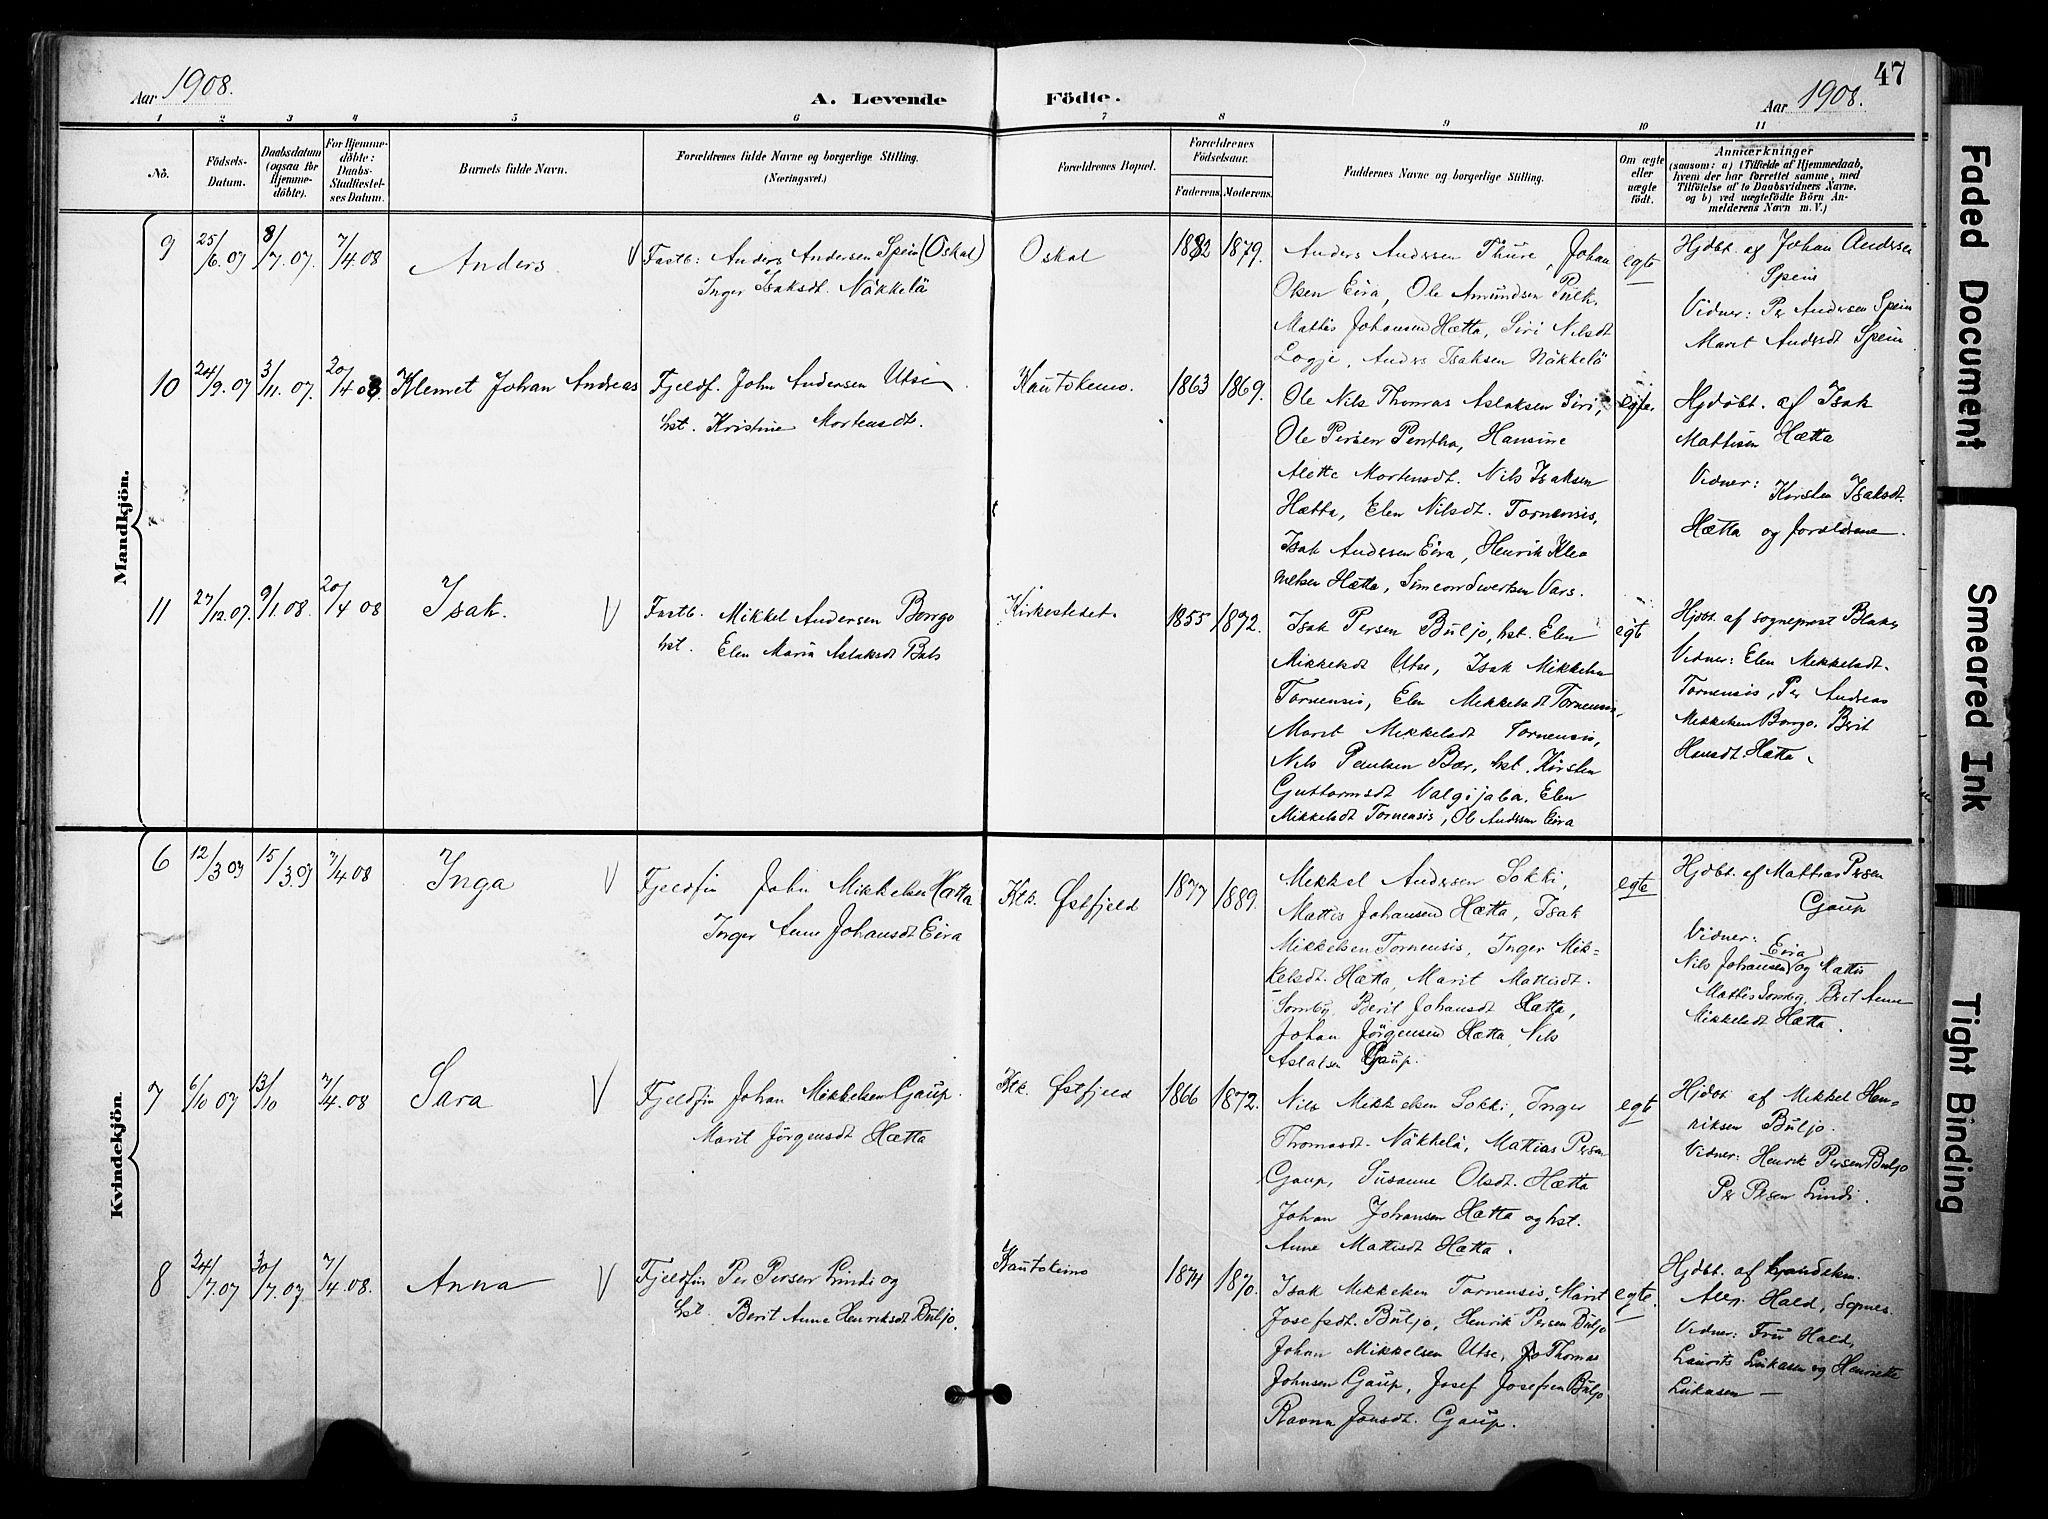 Aar 1908.
A. Levende
Födte.
Aar 1908.
47
1 2 3 4 5 6 7 8 9 10 11
No.
Födsels-
Datum.
Daabsdatum
(ogsaa for
Hjemme-
döbte).
For Hjemme-
döbte:
Daabs-
Stadfæstel-
ses Datum.
Barnets fulde Navn.
Forældrenes fulde Navne og borgerlige Stilling.
(Næringsvei.)
Forældrenes Bopæl.
Forældrenes
Födselsaar.
Faderens.
Moderens.
Faddernes Navne og borgerlige Stilling.
Om ægte
eller
uægte
födt.
Anmærkninger
(saasom: a) i Tilfælde af Hjemmedaab,
hvem der har forrettet samme, med
Tilföielse af to Daabsvidners Navne.
og b) ved uægtefödte Börn An-
melderens Navn m. V.)
Mandkjön.
9
25/6.07
8/7.07.
7/4.08
Anders
V
Fastb: Anders Andersen Spein (Oskal)
Inger Isaksdt. Näkkelä
Oskal
1882
1879.
Anders Andersen Thure, Johan
Olsen Eira, Ole Amundsen Pulk.
Mattis Johansen Hætta, Siri Nilsdt
Logje, Anders Isaksen Näkkelä
egte
Hjdbt. af Johan Andersen
Spein
Vidner: Per Andersen Spein
Marit Andersdt Spein
10
24/9.07
3/11.07.
20/4.08
Klemet Johan Andreas
Fjeldf. John Andersen Utsi
hst. Kristine Mortensdt.
Kautokeino.
1863
1869.
Ole Nils Thomas Aslaksen Siri,
Ole Persen Pentha, Hansine
Alette Mortensdt. Nils Isaksen
Hætta, Elen Nilsdt. Tornensis,
Isak Andersen Eira, Henrik Kle
metsen Hætta, Simeon Vars.
egte.
Hjdöbt. af Isak
Mattisen Hætta
Vidner: Kirsten Isaksdt.
Hætta og forældrene.
11
27/12.07.
9/1.08.
20/4.08
Isak.
V
Fastb. Mikkel Andersen Bongo
hst. Elen Maria Aslaksdt Bals
Kirkestedet.
1855
1872.
Isak Persen Buljo, hst. Elen
Mikkelsdt Utse, Isak Mikkelsen
Tornensis, Elen Mikkelsdt Tornensis,
Marit Mikkelsdt Tornensis,
Nils Paulsen Bær, hst. Kirsten
Guttormsdt Valgijaba. Elen
Mikkelsdt Tornensis, Ole Andersen Eira
egte
Hjdbt. af sogneprest Blakes
Vidner: Elen Mikkelsdt.
Tornensis, Per Andreas
Mikkelsen Bongo. Berit
Hansdt. Hætta.
Kvindekjön.
6
12/3.07
15/3.07
7/4.08
Inga
V
Fjeldfin John Mikkelsen Hætta
Inger Anne Johansdt Eira
Ktk. Østfjeld
1877
1889.
Mikkel Andersen Sokki,
Mattis Johansen Hætta, Isak
Mikkelsen Tornensis, Inger Mik-
kelsdt. Hætta, Marit Mattisdt.
Somby. Berit Johansdt Hætta,
Johan Jörgensen Hætta, Nils
Aslaksen Gaup.
egte
Hjdbt. af Mattias Persen
Gaup
Vidner:
Nils Johansen Eira og Mattis
Mattis Somby, Berit Anne
Mikkelsdt Hætta.
7
6/10 07
13/10
7/4.08
Sara
V
Fjeldfin Johan Mikkelsen Gaup.
Marit Jörgensdt Hætta
Ktk. Østfjeld
1866
1872.
Nils Mikkelsen Sokki, Inger
Thomasdt. Näkkelä, Mattias Persen
Gaup, Susanne Olsdt. Hætta
Johan Johansen Hætta og hst.
Anne Mattisdt Hætta.
egte
Hjdbt af Mikkel Hen-
riksen Buljo.
Vidner: Henrik Persen Buljo
Per Persen Lindi.
8
24/7.07
30/7.07
7/4.08.
Anna
V
Fjeldfin Per Persen Lindi og
hst. Berit Anne Henriksdt Buljo.
Kautokeino
1874
1870.
Isak Mikkelsen Tornensis, Marit
Josefsdt. Buljo, Henrik Persen Buljo
Johan Mikkelsen Utse, Thomas
Johnsen Gaup, Josef Josefsen Buljo
Ravna Jonsdt. Gaup.
egte.
Hjdbt. af
Alex. Hald, Sopnes.
Vidner: Fru Hald,
Laurits Lukasen og Henriette
Lukasen —
Faded Document
Smeared Ink
Tight Binding